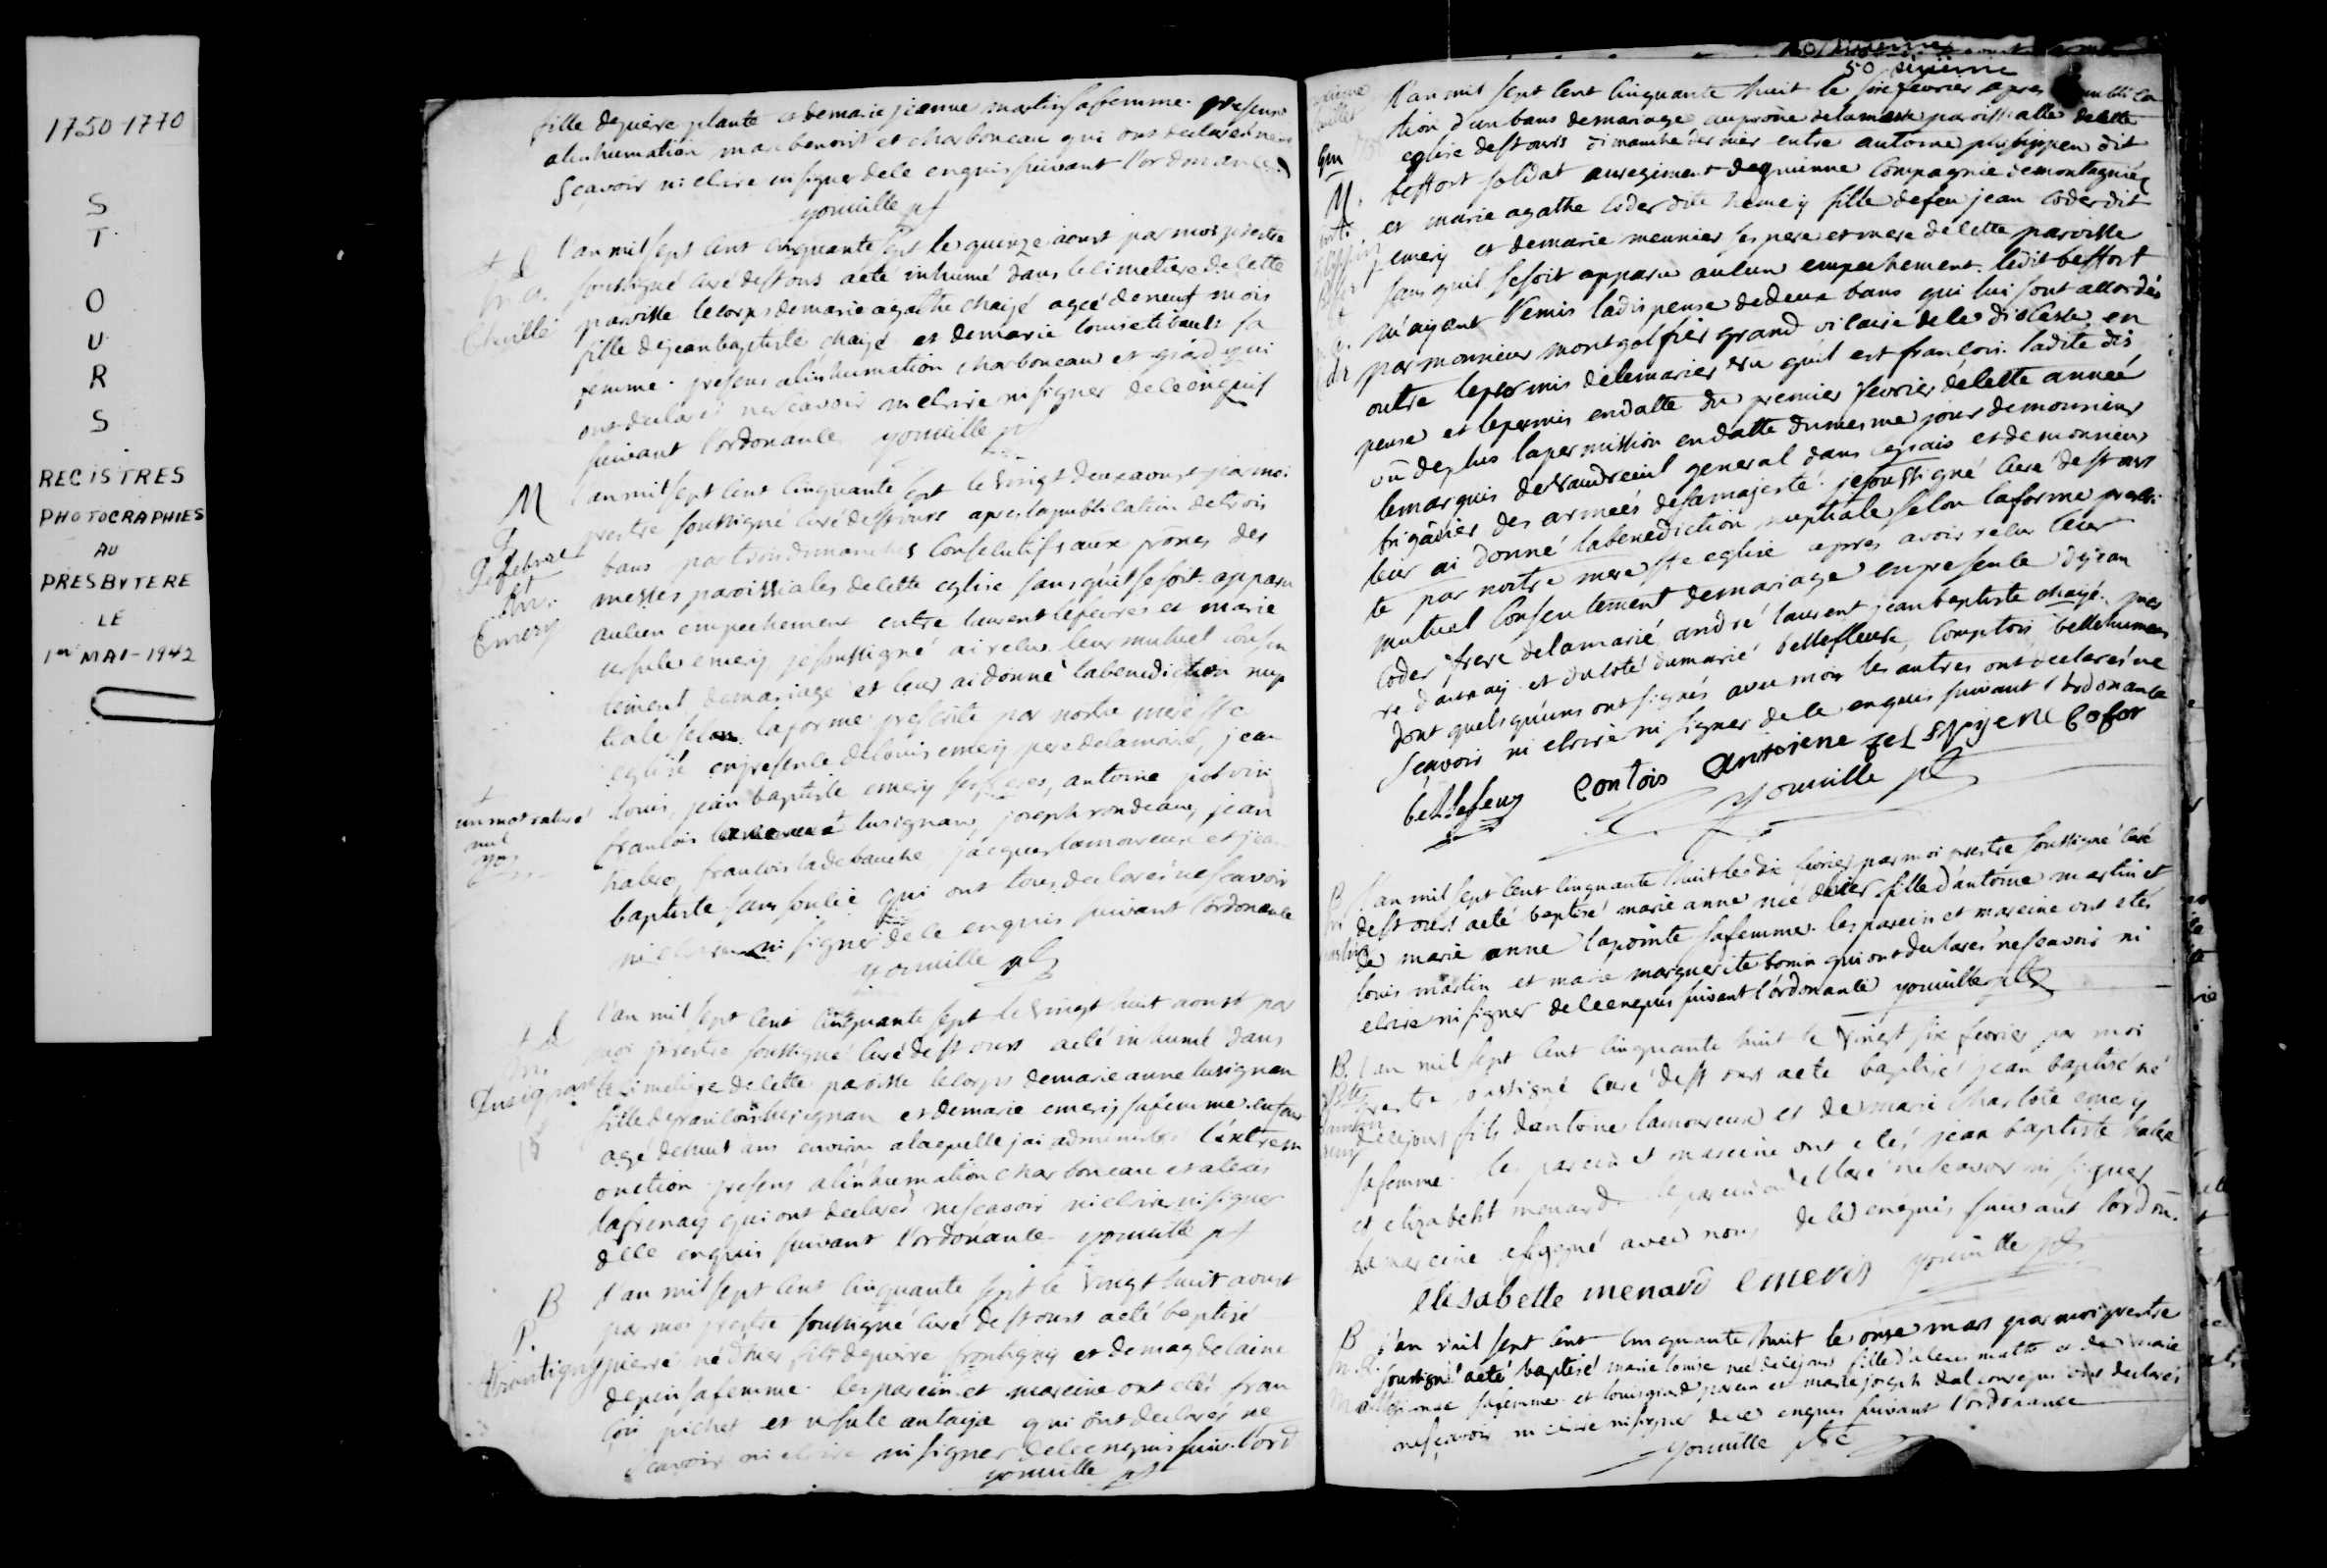 1750-1770
S
T
O
U
R
S
REGISTRES
PHOTOGRAPHIES
AU
PRESBYTERE
LE
1er MAI-1942
fille de pierre plante et de marie jeanne martin sa femme. presens
a linhumation marc benoist et charboneau qui ont declarés ne
scavoir ni ecrire ni signer de ce enquis suivant l'ordonance
youville ptr
l'an mil sept cent cinquante sept le quinze aoust par moi prestre
soussigné curé de st ours a eté inhumé dans le cimetiere de cette
paroisse le corps de marie agathe chaijé agée de neuf mois
fille de jean baptiste chaijé et de marie louise tibault sa
femme. presens a linhumation charboneau et girard qui
ont declarés ne scavoir ni ecrire ni signer de ce enquis
suivant l'ordonance youville ptr
M
Lefebvre
et
Emery
l'an mil sept cent cinquante sept le vingt deux aoust par moi
prestre soussigné curé de st ours apres la publication de trois
bans par trois dimanches consecutifs aux prônes des
messes paroissiales de cette eglise sans qu'il se soit apparu
aucun empechement entre laurent lefevre et marie
ursule emery je soussigné ai recu leur mutuel consen
tement de mariage et leur ai donné la benediction nup
tiale selon la forme prescrite par nostre mere ste
eglise en presence de louis emery pere de la mariée, jean
louis, jean baptiste emery ses freres, antoine potvin
un mot raturé
nul
yo
francois lusignan, joseph rondeau, jean
halero, francois ladebauche jacques lamoureux et jean
baptiste sans soucie qui ont tous declarés ne scavoir
ni ecrire ni signer de ce enquis suivant l'ordonance
youville ptr
Lusignan
l'an mil sept cent cinquante sept le vingt huit aoust par
moi prestre soussigné curé de st ours a eté inhumé dans
le cimetiere de cette paroisse le corps de marie anne lusignan
fille de francois lusignan et de marie emery sa femme. enfant
agé de huit ans environ a laquelle j'ai administré l'extrem
onction. presens a l'inhumation charboneau et alexis
lafrenay qui ont declarés ne scavoir ni ecrire ni signer
de ce enquis suivant l'ordonance. youville ptr
B
P.
frontigny
l'an mil sept cent cinquante sept le vingt huit aoust
par moi prestre soussigné curé de st ours a eté baptisé
pierre né d'hier fils de pierre frontigny et de magdelaine
depin sa femme. les parein et mareine ont etés fran
çois pichet et ursule antaya qui ont declarés ne
scavoir ni ecrire ni signer de ce enquis suiv. l'ord
youville ptr
50 sixieme
M.
l'an mil sept cent cinquante huit le six fevrier apres publica
tion d'un bans de mariage au prône de la messe paroissialle de cette
eglise de st ours dimanche dernier entre antoine phisippen dit
beffort soldat au regiment de guienne compagnie de montagniés
et marie agathe coder dite hemery fille de feu jean coder dit
emery et de marie meunier ses pere et mere de cette paroisse
sans qu'il se soit apparu aucun empechement. ledit beffort
m'aiant remis la dispense de deux bans qui lui sont accordés
par monsieur montgolfier grand vicaire de ce diocese, en
outre le permis de le marier vu qu'il est francois. ladite dis
pense et le permis en datte du premier fevrier de cette année
vû de plus la permission en datte du mesme jour de monsieur
le marquis de vaudreuil general dans ces pais et de monsieur
brigâdier des armeés de sa majesté. je soussigné curé de st ours
leur ai donné la benediction nuptiale selon la forme prescri
te par nostre mere ste eglise apres avoir recu leur
mutuel consentement de mariage en presence de jean
coder frere de la marié andré laurent, jean baptiste chaijé, pier
re daunay et du coté du marié bellefleur, comptois bellehumeur
dont quelsqu'uns ont signés avec moi les autres ont declarés ne
scavoir ni ecrire ni signer de ce enquis suivant l'ordonance
bellefleur contois antoiene
youville ptr
B
l'an mil sept cent cinquante huit le dix fevrier par moi prestre soussigné curé
de st ours a eté baptisé marie anne née d'hier fille d'antoine martin et
de marie anne lapointe sa femme. les parein et mareine ont etés
louis martin et marie marguerite bonin qui ont declarés ne scavoir ni
ecrire ni signer de ce enquis suivant l'ordonance youville ptr
B.
l'an mil sept cent cinquante huit le vingt six fevrier par moi
prestre soussigné curé de st ours a eté baptisé jean baptise né
de ce jour fils d'antoine lamoureux et de marie charlote emery
sa femme. les parein et mareine ont etés jean baptiste halero
et elizabeht menard. le parein a declaré ne scavoir ni signer
la mareine a signé avec nous de ce enquis suivant l'ordon.
elisabelle menard emeris youville ptr
B
l'an mil sept cent cinquante huit le onze mars par moi prestre
soussigné a eté baptisé marie louise née de ce jour fille d'alexis matte et de marie
sa femme et louis girard parein et marie joseph ont declarés
ne scavoir ni ecrire ni signer de ce enquis suivant l'ordonance
youville ptr